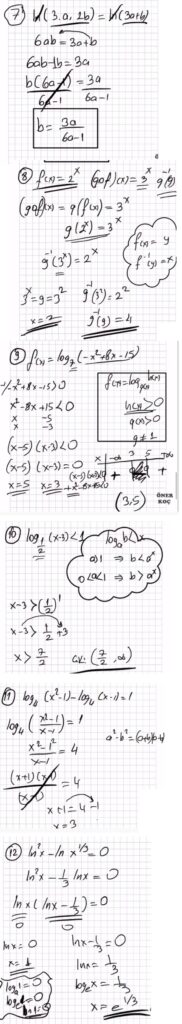 7) ln(3a.2b) = ln(3a+b)
6ab = 3a+b
6ab-1b = 3a
b(6a-1)/6a-1 = 3a/6a-1
b = 3a/6a-1
8) f(x) = 2^x (gof)(x) = 3^x g^-1(9)
(gof)(x) = g(f(x)) = 3^x
g(2^x) = 3^x
g^-1(3^x) = 2^x
f(x) = y
f^-1(y) = x
3^x = 9 = 3^2 g^-1(3^2) = 2^2
x = 2 g^-1(9) = 4
9) f(x) = log_7(-x²+8x-15)
-1/-x²+8x-15>0
x²-8x+15<0
x -5
x -3
(x-5)(x-3)<0
(x-5)(x-3)=0
x=5 x=3
f(x) = log_g(x) h(x)
h(x)>0
g(x)>0
g≠1
x -∞ 3 5 +∞
+ - +
(3,5)
ÖNER
KOÇ
10) log_1/2 (x-3)<1
log_a b<x
a>1 ⇒ b<a^x
0<a<1 ⇒ b>a^x
x-3>(1/2)^1
x-3>1/2+3
x>7/2 Ç.K: (7/2,∞)
11) log_4(x²-1)-log_4(x-1)=1
log_4(x²-1/x-1)=1
a²-b²=(a+b)(a-b)
x²-1²/x-1 = 4
(x+1)(x-1)/(x-1) = 4
x+1=4-1
x=3
12) ln²x-ln x^1/3=0
ln²x-1/3 lnx=0
lnx(lnx-1/3)=0
0 0
lnx=0 lnx-1/3=0
x=1 lnx=1/3
ln1=0 log_e x=1/3
log_e 1=0
x=e^1/3